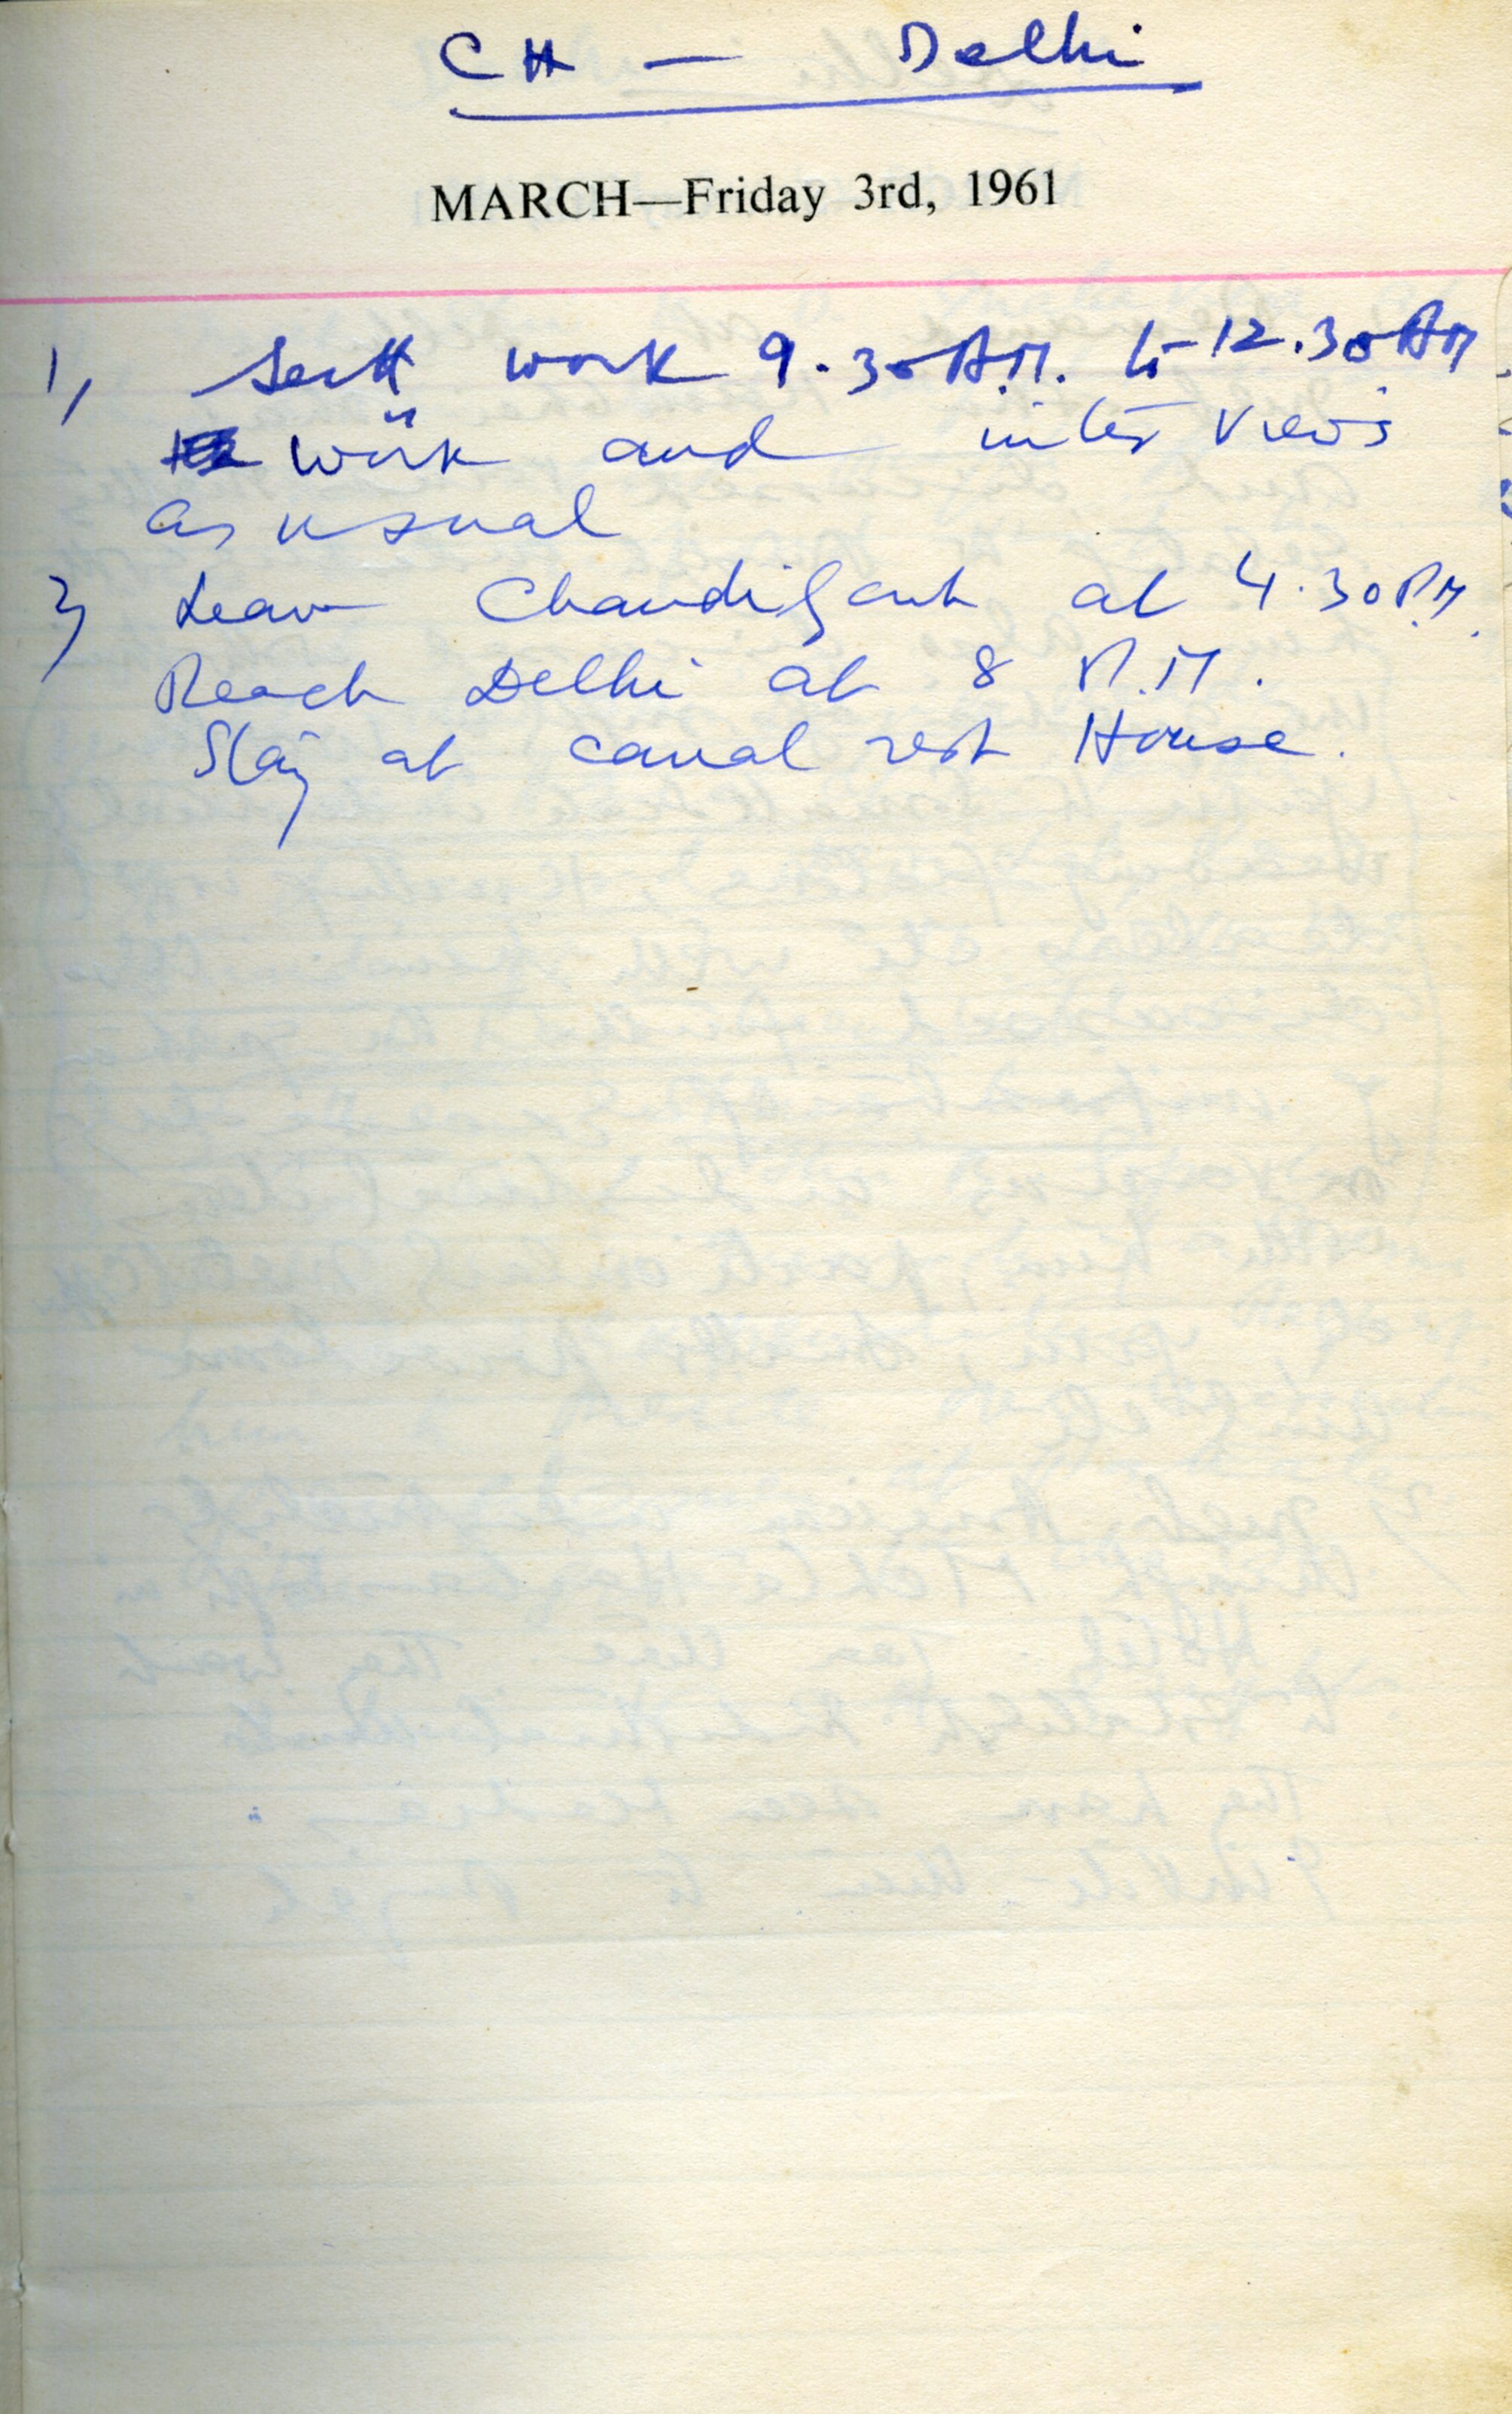 CH — Delhi
MARCH—Friday 3rd, 1961
1, Sectt work 9.30 A.M. to 12.30 AM
work and inter views
as usual
2, Leave Chandigarh at 4.30 P.M.
Reach Delhi at 8 P.M.
Stay at canal rest House.